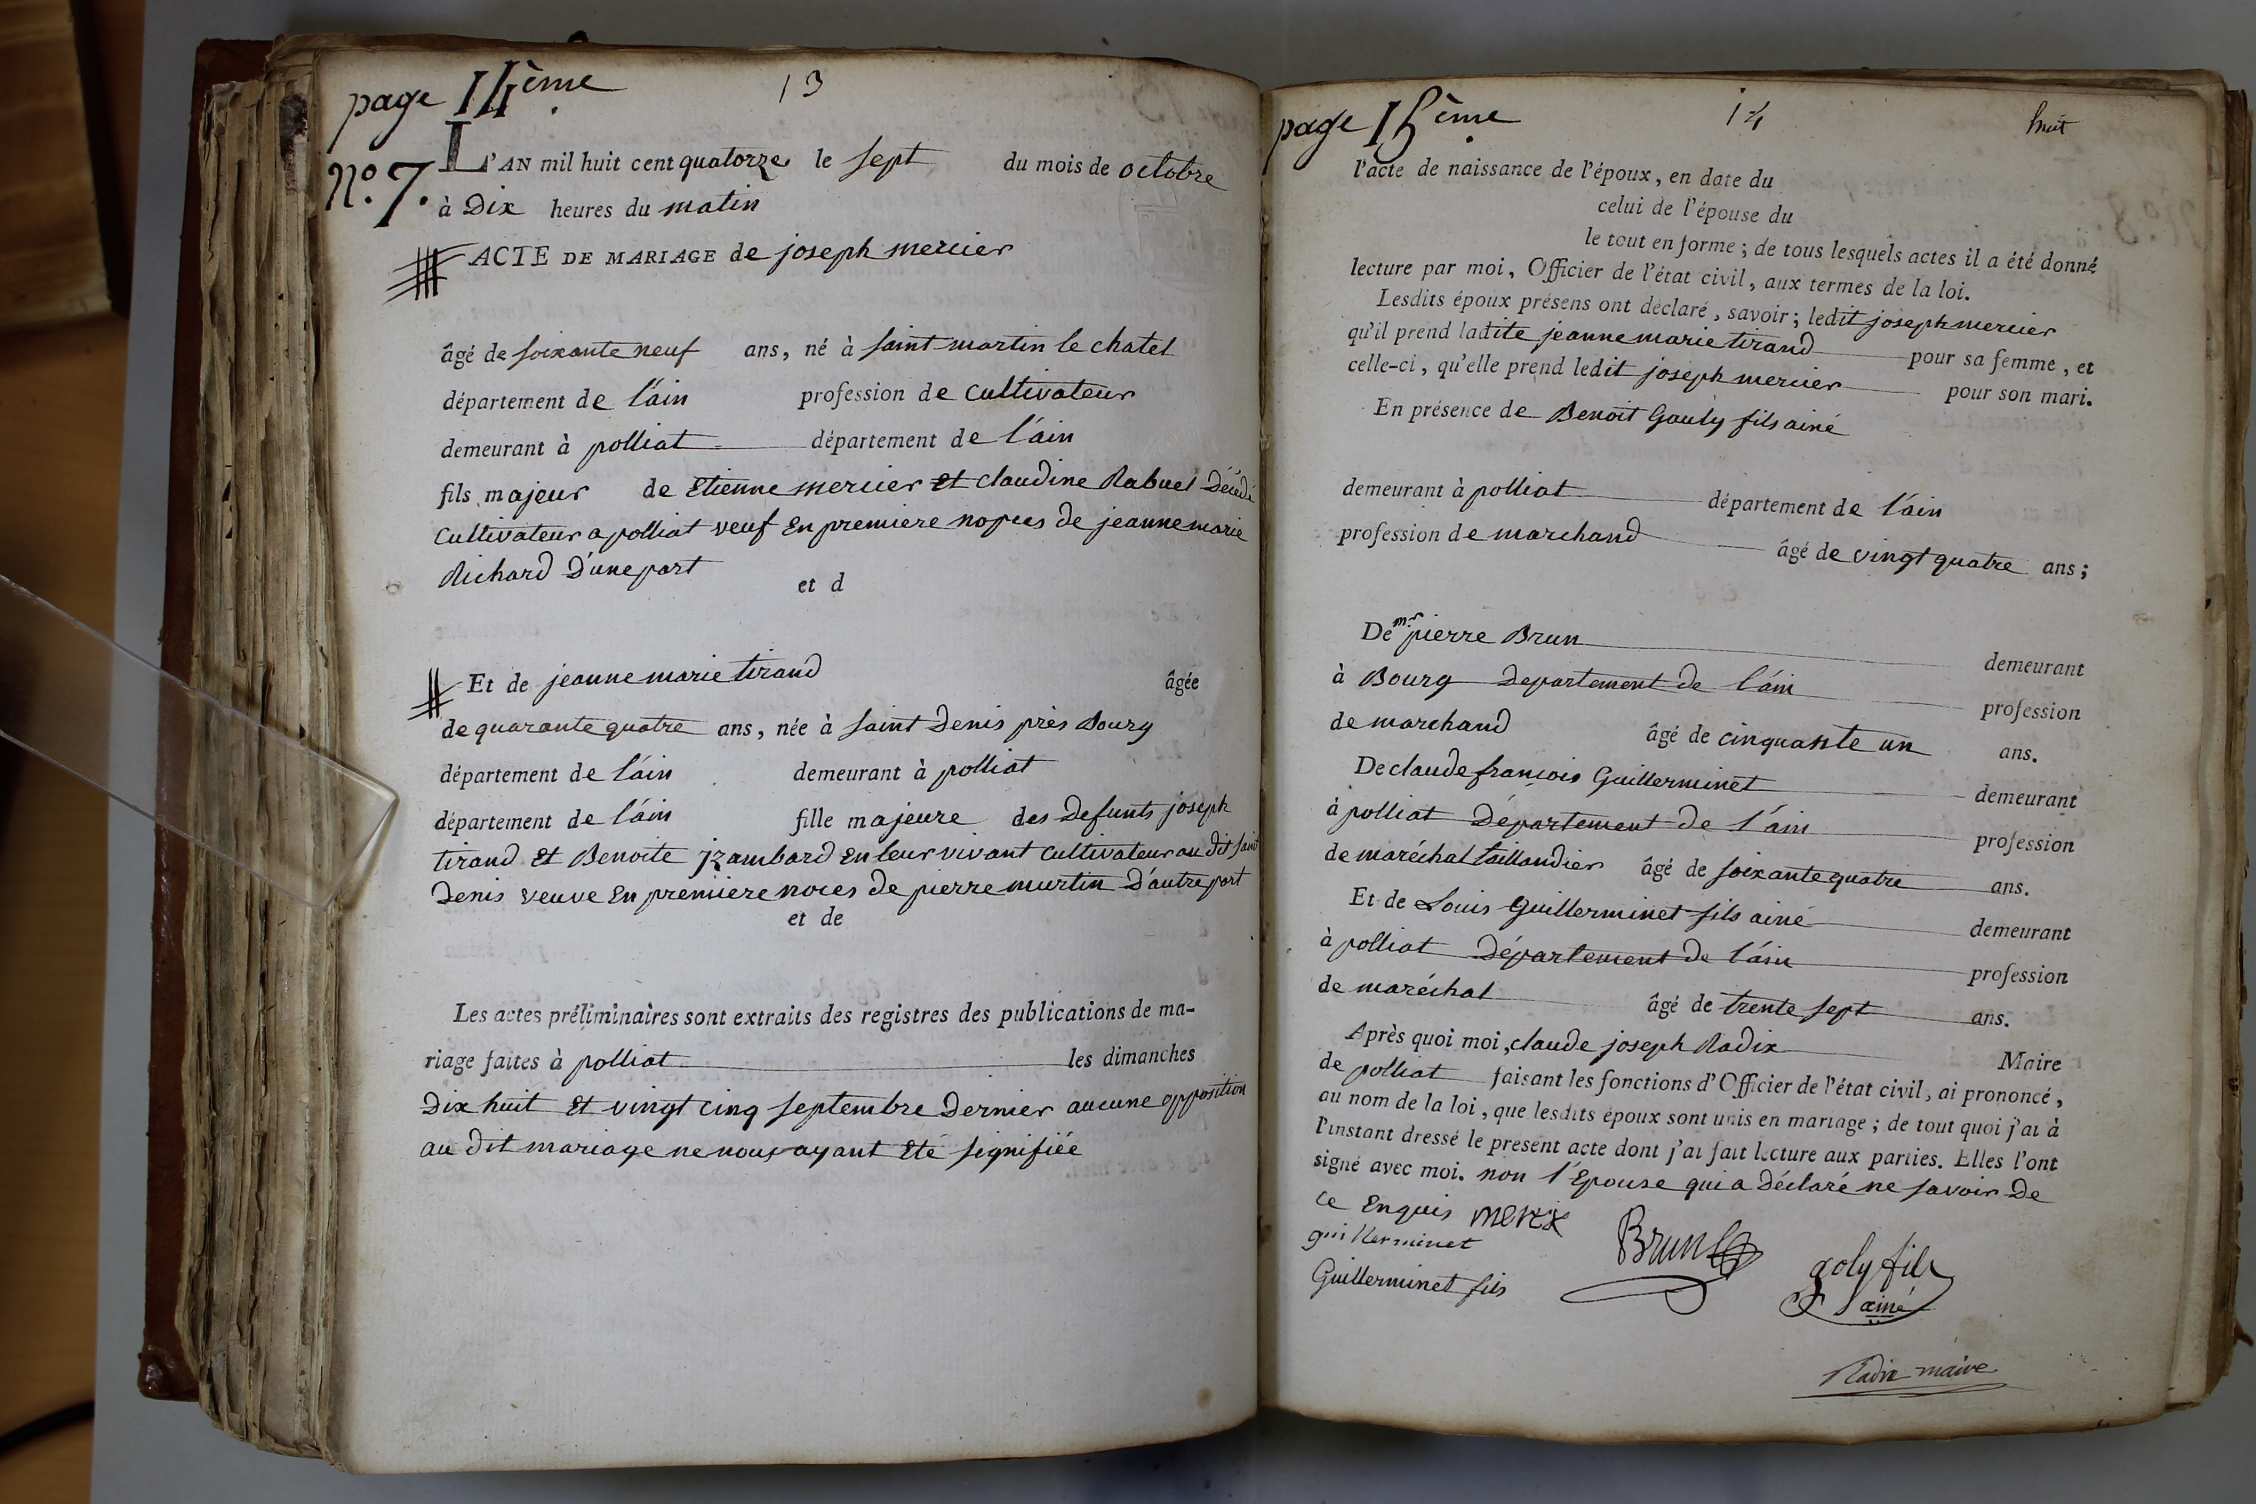 page 14ème
13
N.º 7.
L'AN mil huit cent quatorze le sept du mois de octobre
à Dix heures du matin
ACTE DE MARIAGE de joseph mercier
âgé de soixante neuf ans, né à saint martin le chatel
département de l'ain profession de cultivateur
demeurant à polliat département de l'ain
fils majeur de Etienne mercier Et claudine Rabuel Décédé
cultivateur a polliat veuf En premiere nopces de jeanne marie
Richard D'une part
et d
Et de jeanne marie tirand âgée
de quarante quatre ans, née à saint Denis près Bourg
département de l'ain demeurant à polliat
département de l'ain fille majeure des Defunts joseph
tirand Et Benoite jzambard En leur vivant cultivateur au dit saint
Denis veuve En premiere noces de pierre murtin D'autre part
et de
Les actes préliminaires sont extraits des registres des publications de ma-
riage faites à polliat les dimanches
Dix huit Et vingt cinq septembre Dernier aucune opposition
au dit mariage ne nous ayant Eté signifiée
page 15ème
14
huit
l'acte de naissance de l'époux, en date du
celui de l'épouse du
le tout en forme; de tous lesquels actes il a été donné
lecture par moi, Officier de l'état civil, aux termes de la loi.
Lesdits époux présens ont déclaré, savoir; ledit joseph mercier
qu'il prend ladite jeanne marie tirand pour sa femme, et
celle-ci, qu'elle prend ledit joseph mercier pour son mari.
En présence de Benoit Gauly fils ainé
demeurant à polliat département de l'ain
profession de marchand âgé de vingt quatre ans;
De mr. pierre Brun demeurant
à Bourg Departement de l'ain profession
de marchand âgé de cinquante un ans.
De claude françois Guillerminet demeurant
à polliat Département de l'ain profession
de maréchal taillandier âgé de soixante quatre ans.
Et de Louis Guillerminet fils ainé demeurant
à polliat Département de l'ain profession
de maréchal âgé de trente sept ans.
Après quoi moi, claude joseph Radix Maire
de polliat faisant les fonctions d'Officier de l'état civil, ai prononcé,
au nom de la loi, que lesdits époux sont unis en mariage; de tout quoi j'ai à
l'instant dressé le present acte dont j'ai fait lecture aux parties. Elles l'ont
signé avec moi. non l'Epouse qui a Déclaré ne savoir De
ce Enquis
guillerminet
Brun
goly fils
ainé
Guillerminet fils
Radix maire